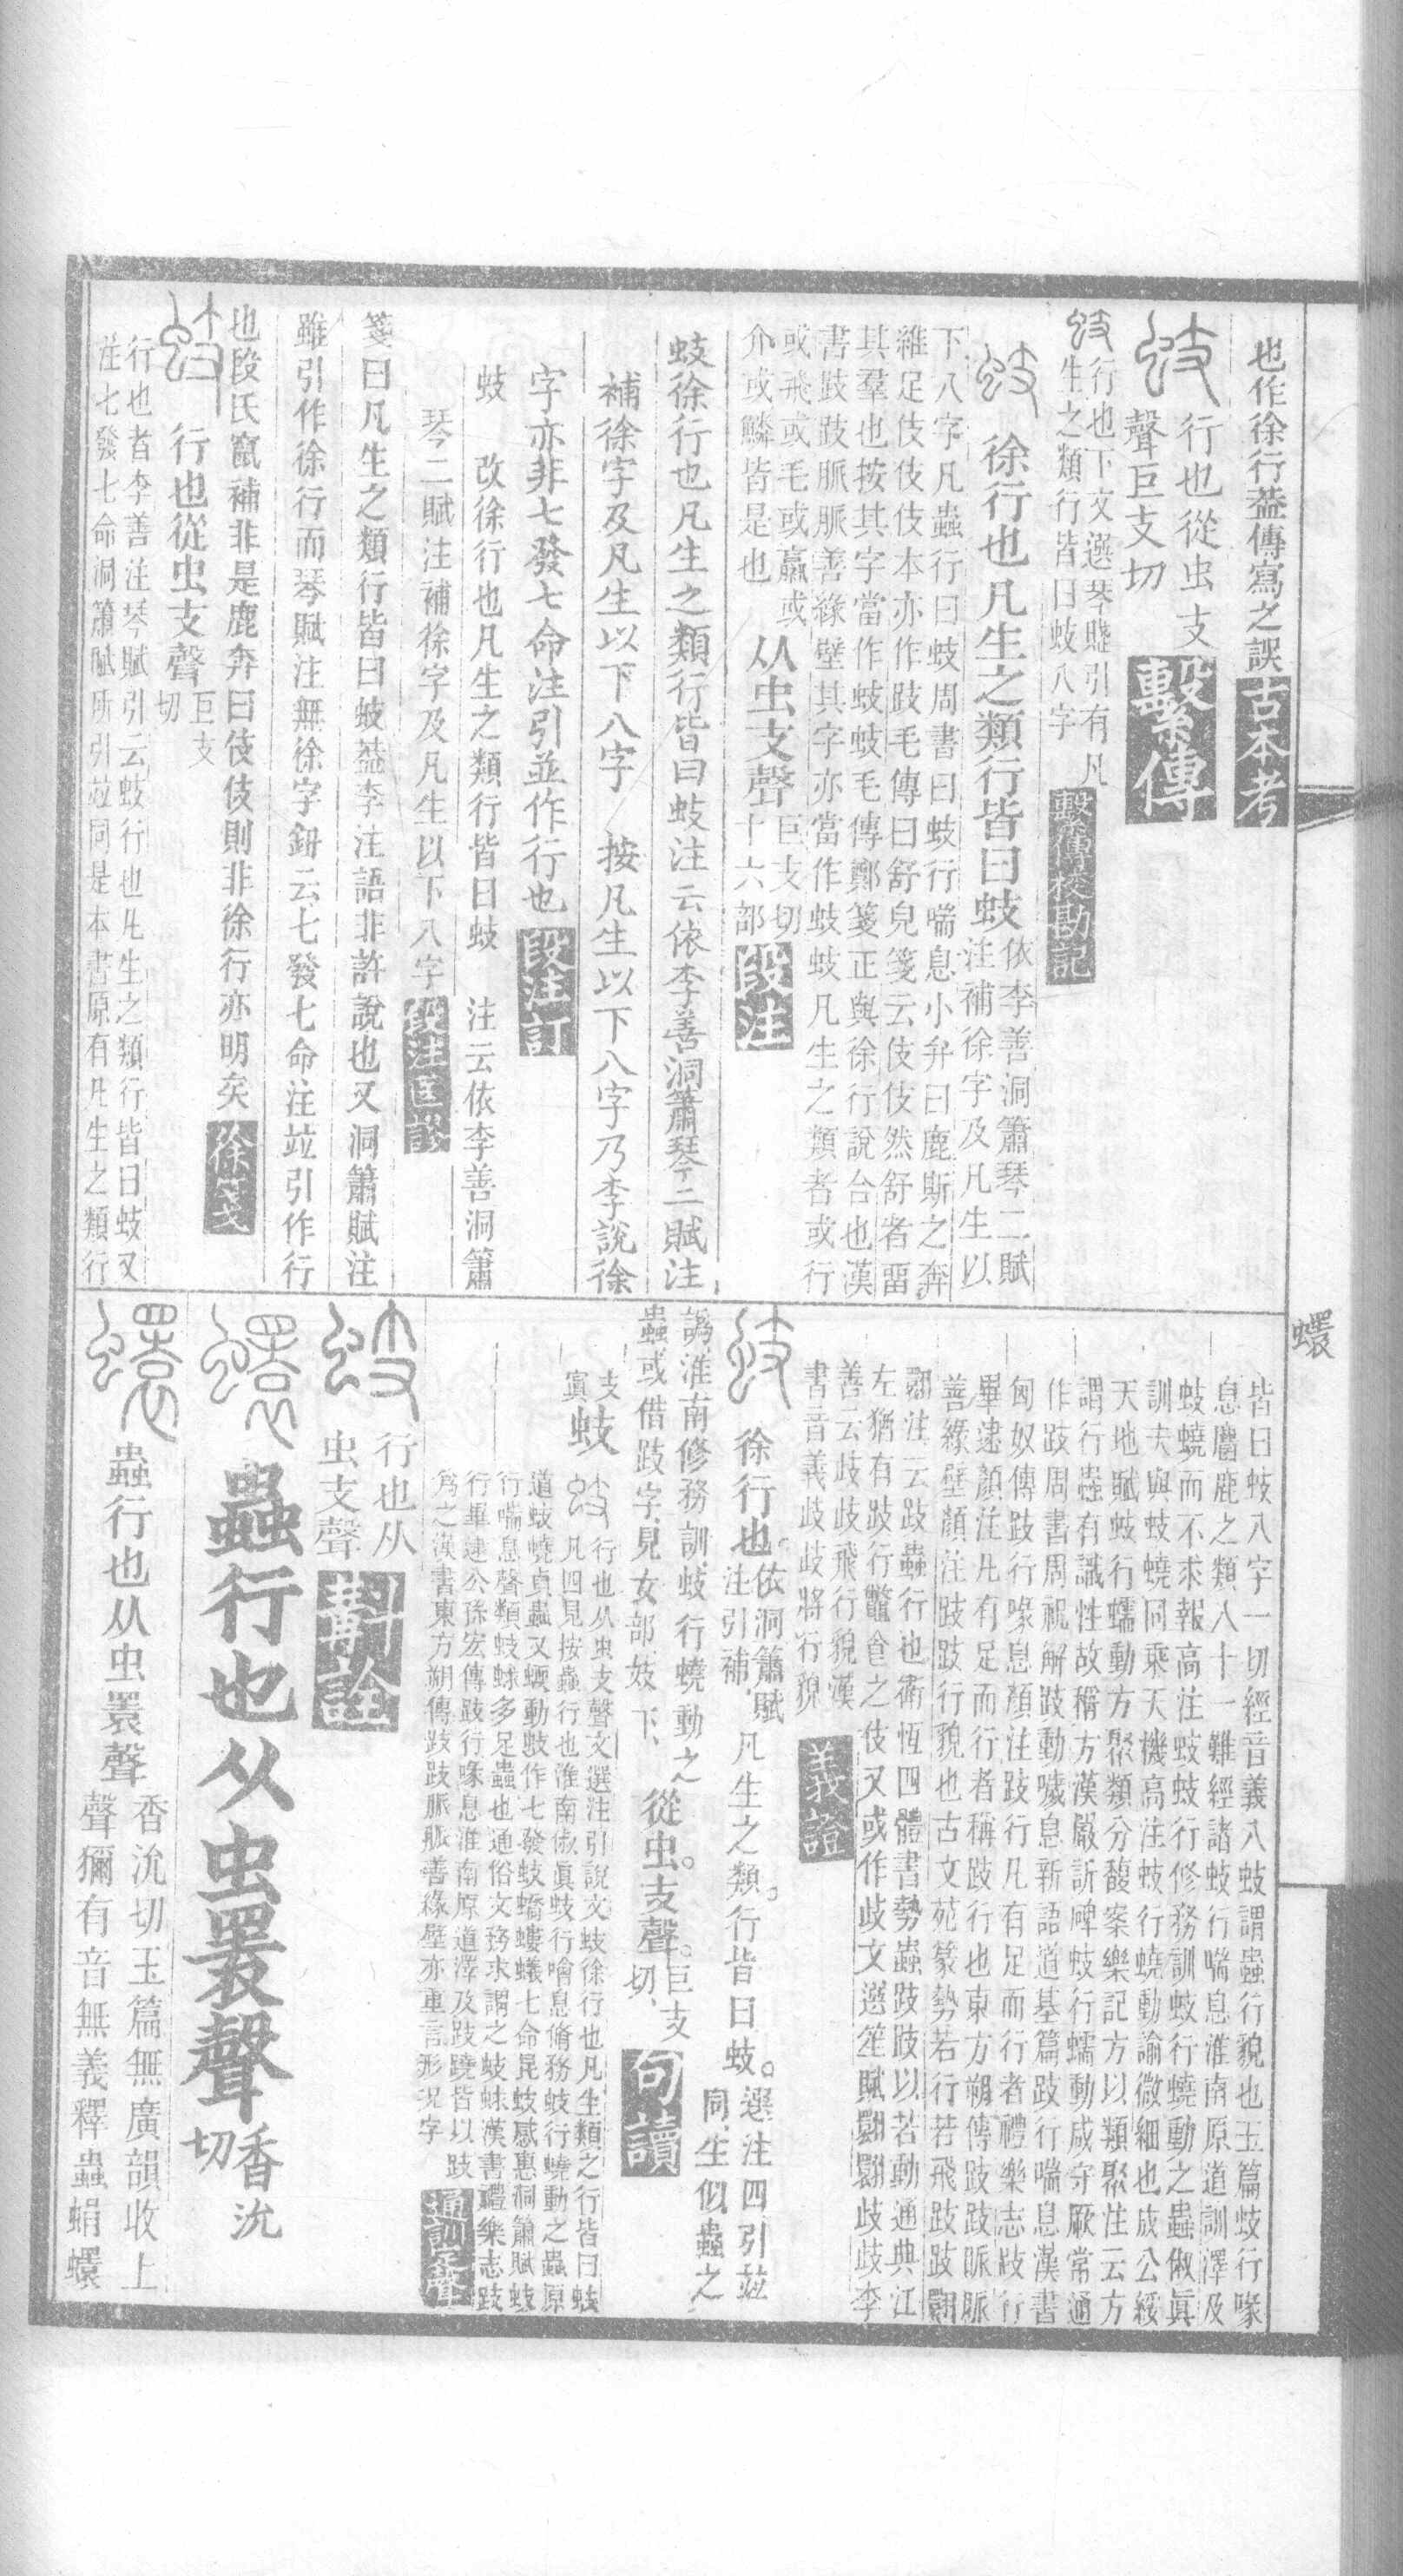 也作徐行葢傳寫之誤古本考
行也從虫支
聲巨支切
繫傳
行也下文選琴賦引有凡
生之類行皆曰蚑八字
繫傳校勘記
徐行也凡生之類行皆曰蚑
依李善洞簫琴二賦
注補徐字及凡生以
下八字凡蟲行曰蚑周書曰蚑行喘息小弁曰鹿斯之奔
維足伎伎本亦作跂毛傳曰舒皃箋云伎伎然舒者畱
其羣也按其字當作蚑蚑毛傳鄭箋正與徐行說合也漢
書跂跂脈脈善緣壁其字亦當作蚑蚑凡生之類者或行
或飛或毛或蠃或
介或鱗皆是也
从虫支聲
巨支切
十六部
段注
蚑徐行也凡生之類行皆曰蚑注云依李善洞簫琴二賦注
補徐字及凡生以下八字 按凡生以下八字乃李說徐
字亦非七發七命注引並作行也段注訂
蚑 改徐行也凡生之類行皆曰蚑 注云依李善洞簫
琴二賦注補徐字及凡生以下八字段注匡謬
箋曰凡生之類行皆曰蚑葢李注語非許說也又洞簫賦注
雖引作徐行而琴賦注無徐字鈕云七發七命注竝引作行
也段氏竄補非是鹿奔曰伎伎則非徐行亦明矣徐箋
行也從虫支聲
巨支
切
行也者李善注琴賦引云蚑行也凡生之類行皆曰蚑又
注七發七命洞簫賦所引竝同是本書原有凡生之類行
皆曰蚑八字一切經音義八蚑謂蟲行貌也玉篇蚑行喙
息麕鹿之類八十一難經諸蚑行喘息淮南原道訓澤及
蚑蟯而不求報高注蚑蚑行修務訓蚑行蟯動之蟲俶眞
訓夫與蚑蟯同乘天機高注蚑行蟯動諭微細也成公綏
天地賦蚑行蠕動方聚類分馥案樂記方以類聚注云方
謂行蟲有識性故稱方漢嚴訢碑蚑行蠕動咸守厥常通
作跂周書周祝解跂動噦息新語道基篇跂行喘息漢書
匈奴傳跂行喙息顏注跂行凡有足而行者禮樂志跂行
畢逮顏注凡有足而行者稱跂行也東方朔傳跂跂脈脈
善緣壁顏注跂跂行貌也古文苑篆勢若行若飛跂跂翾
翾注云跂蟲行也衛恆四體書勢蟲跂跂以若動通典江
左猶有跂行鼈食之伎又或作歧文選笙賦翾翾歧歧李
善云歧歧飛行貌漢
書音義歧歧將行貌
義證
徐行也。
依洞簫賦
注引補、
凡生之類。行皆曰蚑。
選注四引竝
同、生似蟲之
譌、淮南修務訓、蚑行蟯動之
蟲、或借跂字、見女部妓下、
從虫。支聲。
巨支
切、
句讀
支
寘
蚑
行也从虫支聲文選注引說文蚑徐行也凡生類之行皆曰蚑
凡四見按蟲行也淮南俶眞蚑行噲息脩務蚑行蟯動之蟲原
道蚑蟯貞蟲又蝡動蚑作七發蚑蟜螻蟻七命昆蚑感惠洞簫賦蚑
行喘息聲類蚑蛷多足蟲也通俗文務求謂之蚑蛷漢書禮樂志跂
行畢逮公孫宏傳跂行喙息淮南原道澤及跂蟯皆以跂
爲之漢書東方朔傳跂跂脈脈善緣壁亦重言形況字
通訓定聲
行也从
虫支聲
斠詮
蟲行也从虫睘聲
香沇
切
蟲行也从虫睘聲
香沇切玉篇無廣韻收上
聲獮有音無義釋蟲蜎蠉
蠉